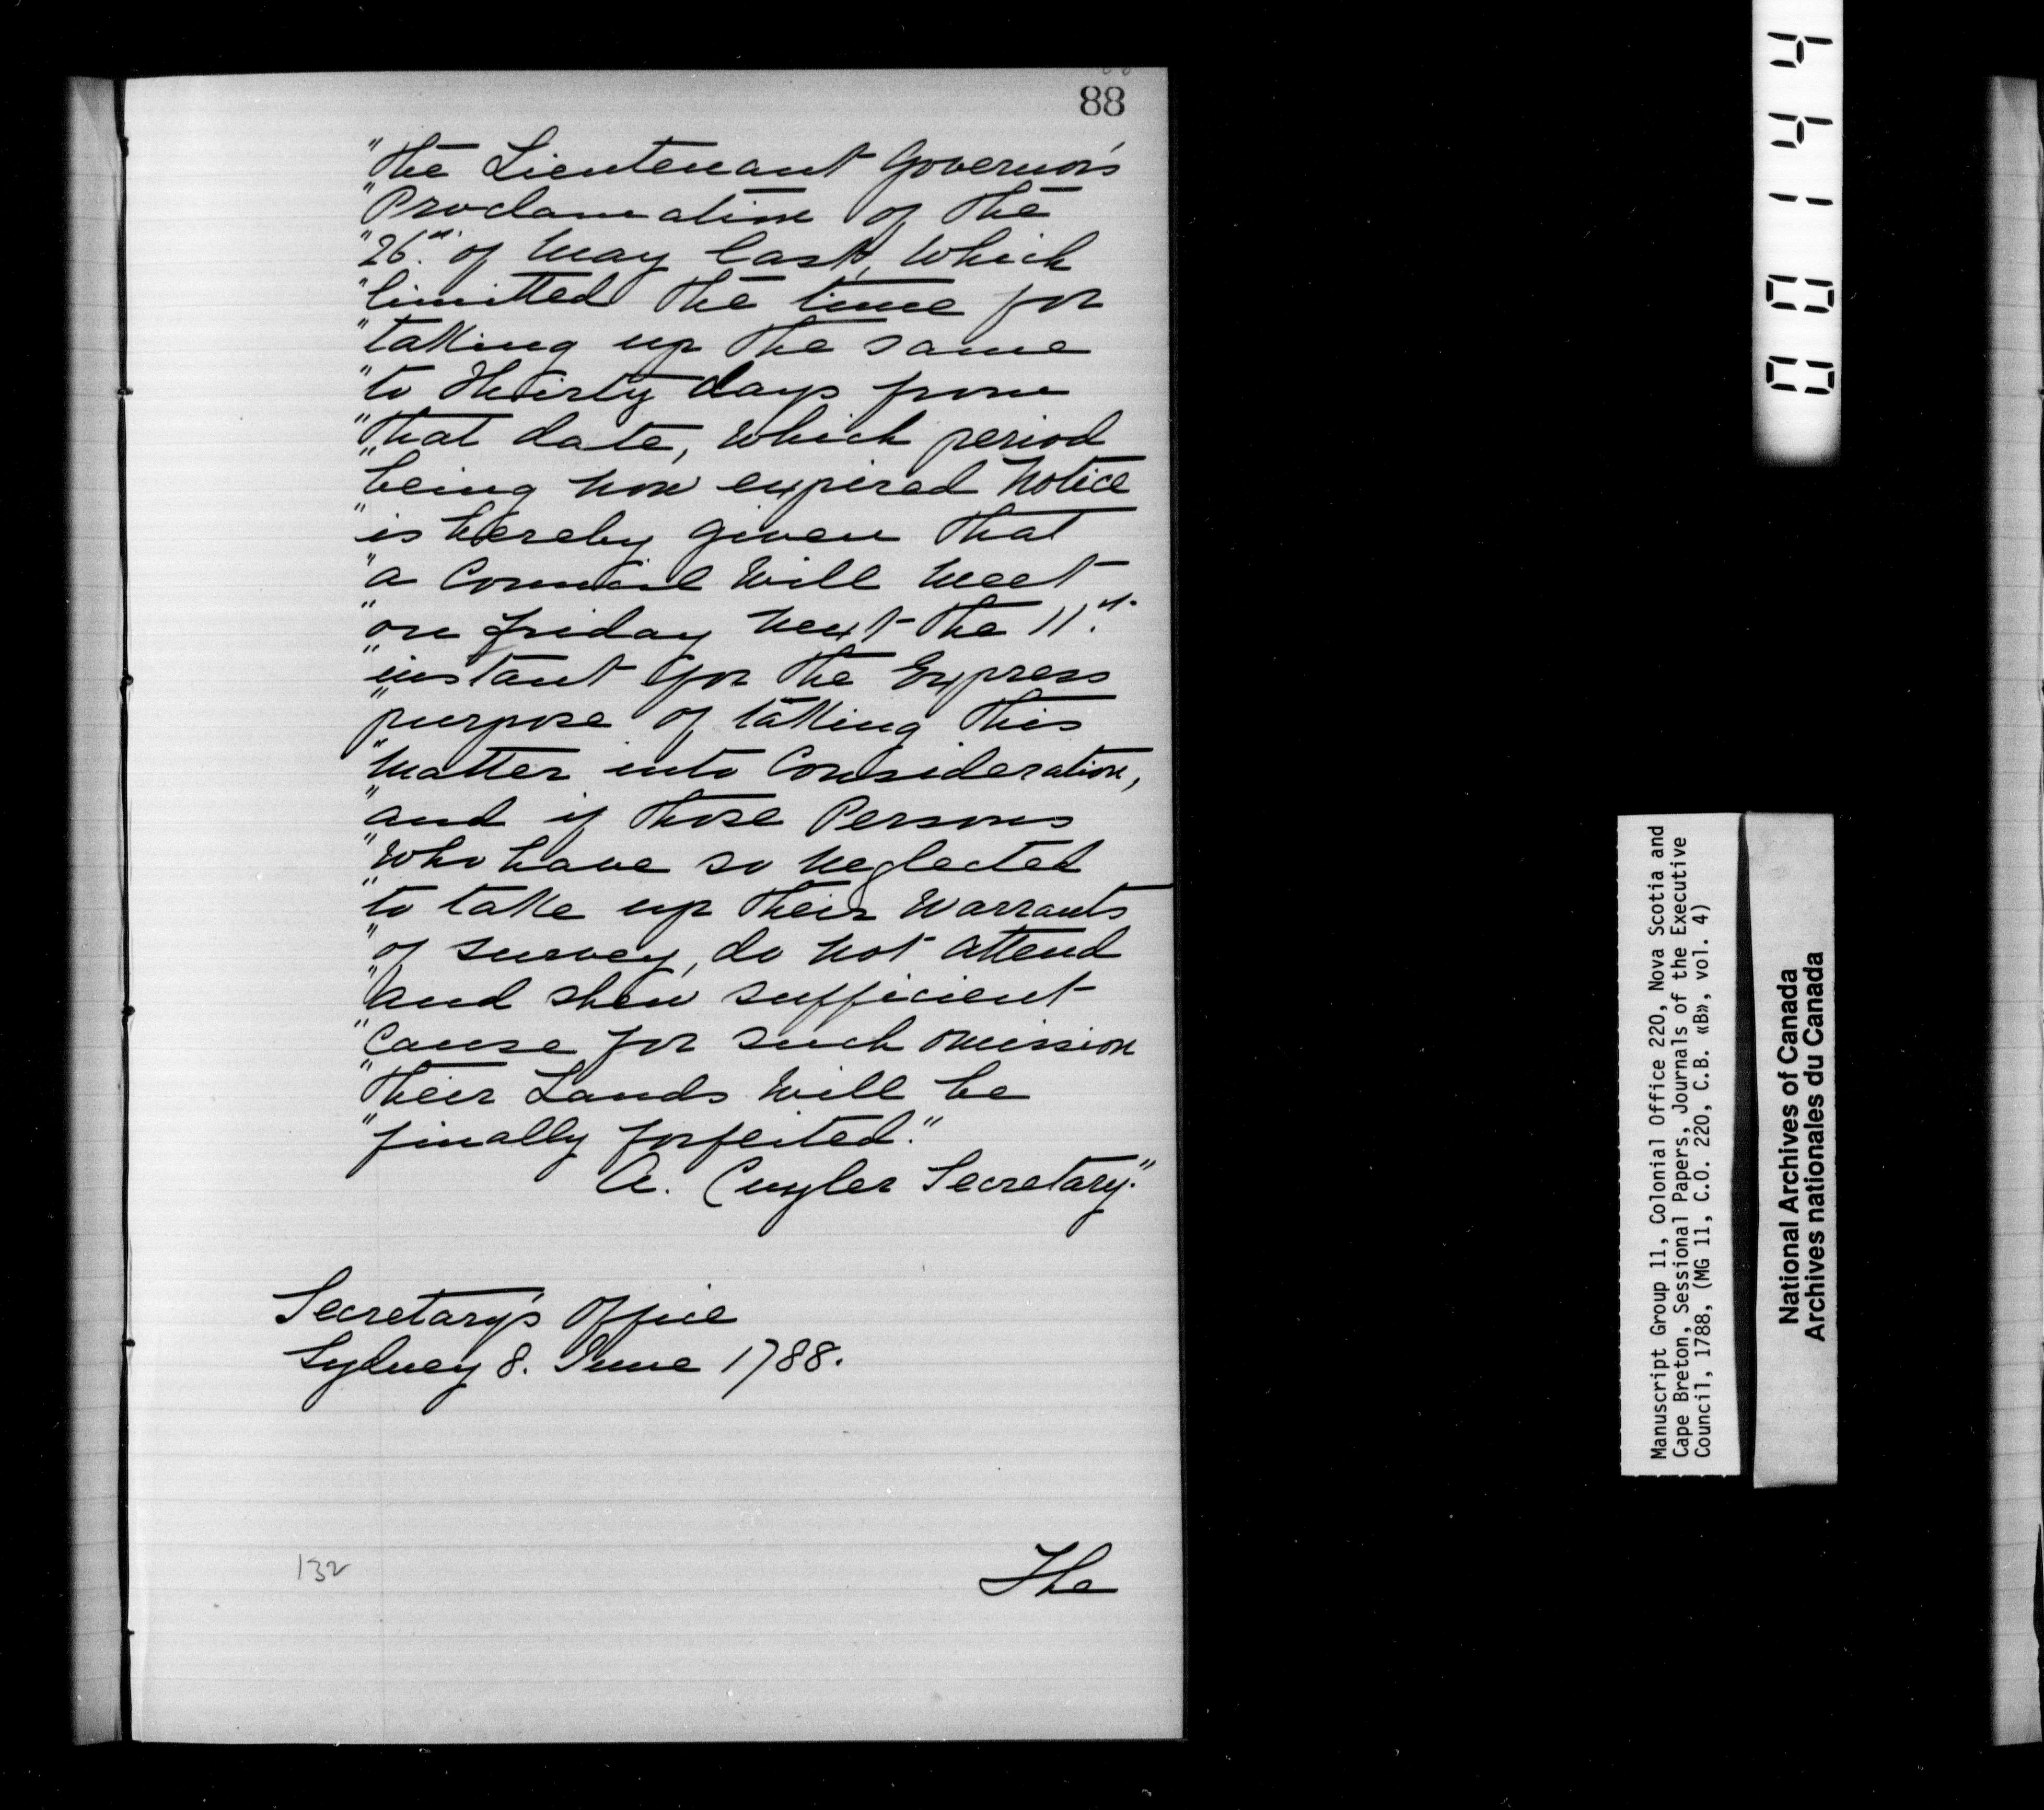 88
"The Lieutenant Governor's
"Proclamation of the
"26th. of May last, which
"limitted the time for
"taking up the same
"to thirty days from
"that date, which period
"being now expired Notice
"is hereby given that
"a Council will meet
"on Friday next the 11th.
"instant for the Express
"purpose of taking this
"matter into Consideration,
"and if those Persons
"who have so neglected
"to take up their Warrants
"of survey, do not attend
"and shew sufficient
"Cause for such omission
"their Lands will be
"finally forfeited."
A. Cuyler Secretary."
Secretary's Office
Sydney 8. June 1788.
132
The
00144
Manuscript Group 11, Colonial Office 220, Nova Scotia and
Cape Breton, Sessional Papers, Journals of the Executive
Council, 1788, (MG 11, C.O. 220, C.B. «B», vol. 4)
National Archives of Canada
Archives nationales du Canada